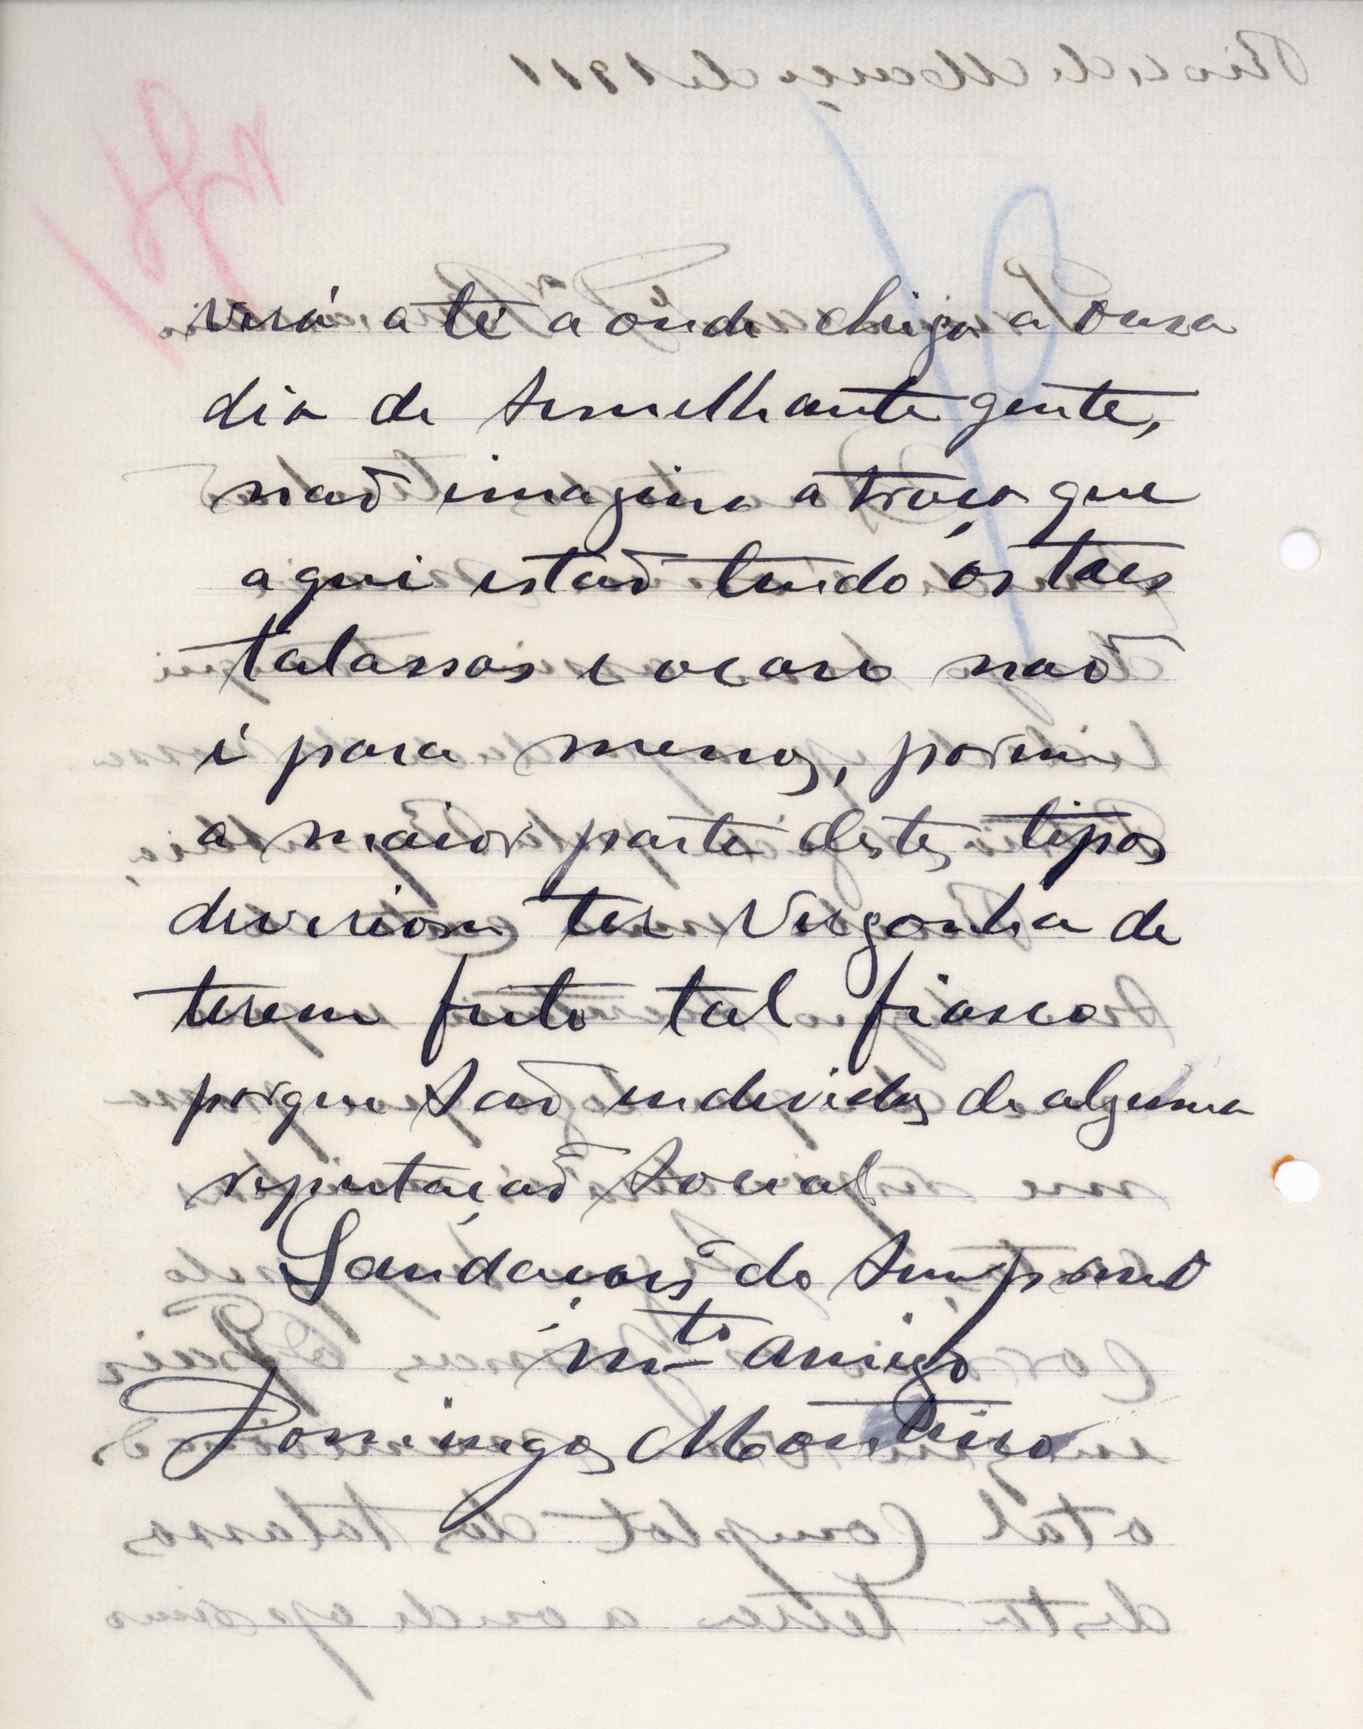 verá a té a onde chega a ousa
dia de semelhante gente,
naõ imagina a troça que
aqui estaõ tendo os taes
talassas e o caso naõ
é para menos, porem
a maior parte destes tipos
deveriam ter vergonha de
terem feito tal fiasco
porque saõ individos de alguma
reputaçaõ social
Saudações do sempre
mto amigo
Domingos Monteiro